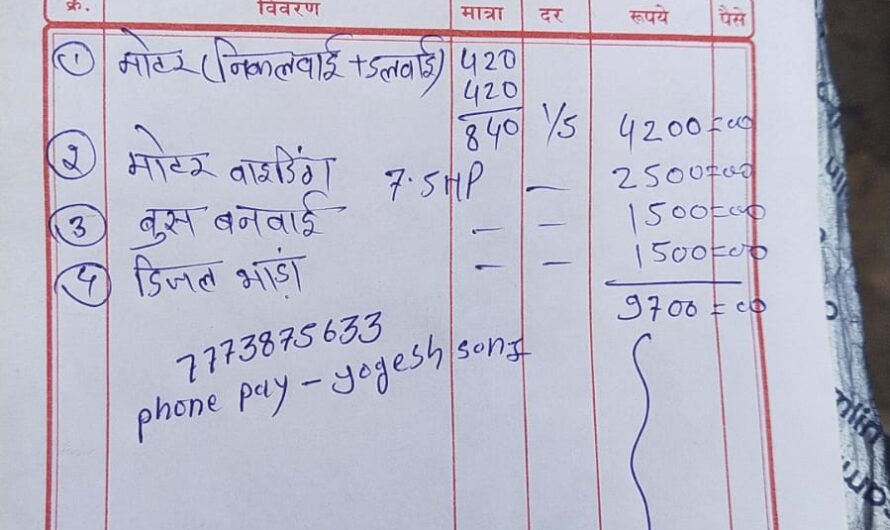 क्र. विवरण मात्रा दर रूपये पैसे
① मोटर (निकलवाई + डलवाई) 420
420
840 1/5 4200=00
② मोटर वाइडिंग 7.5HP — 2500=00
③ बुस बनवाई — — 1500=00
④ डिजल भाड़ा — — 1500=00
9700=00
7773875633
phone pay - yogesh soni